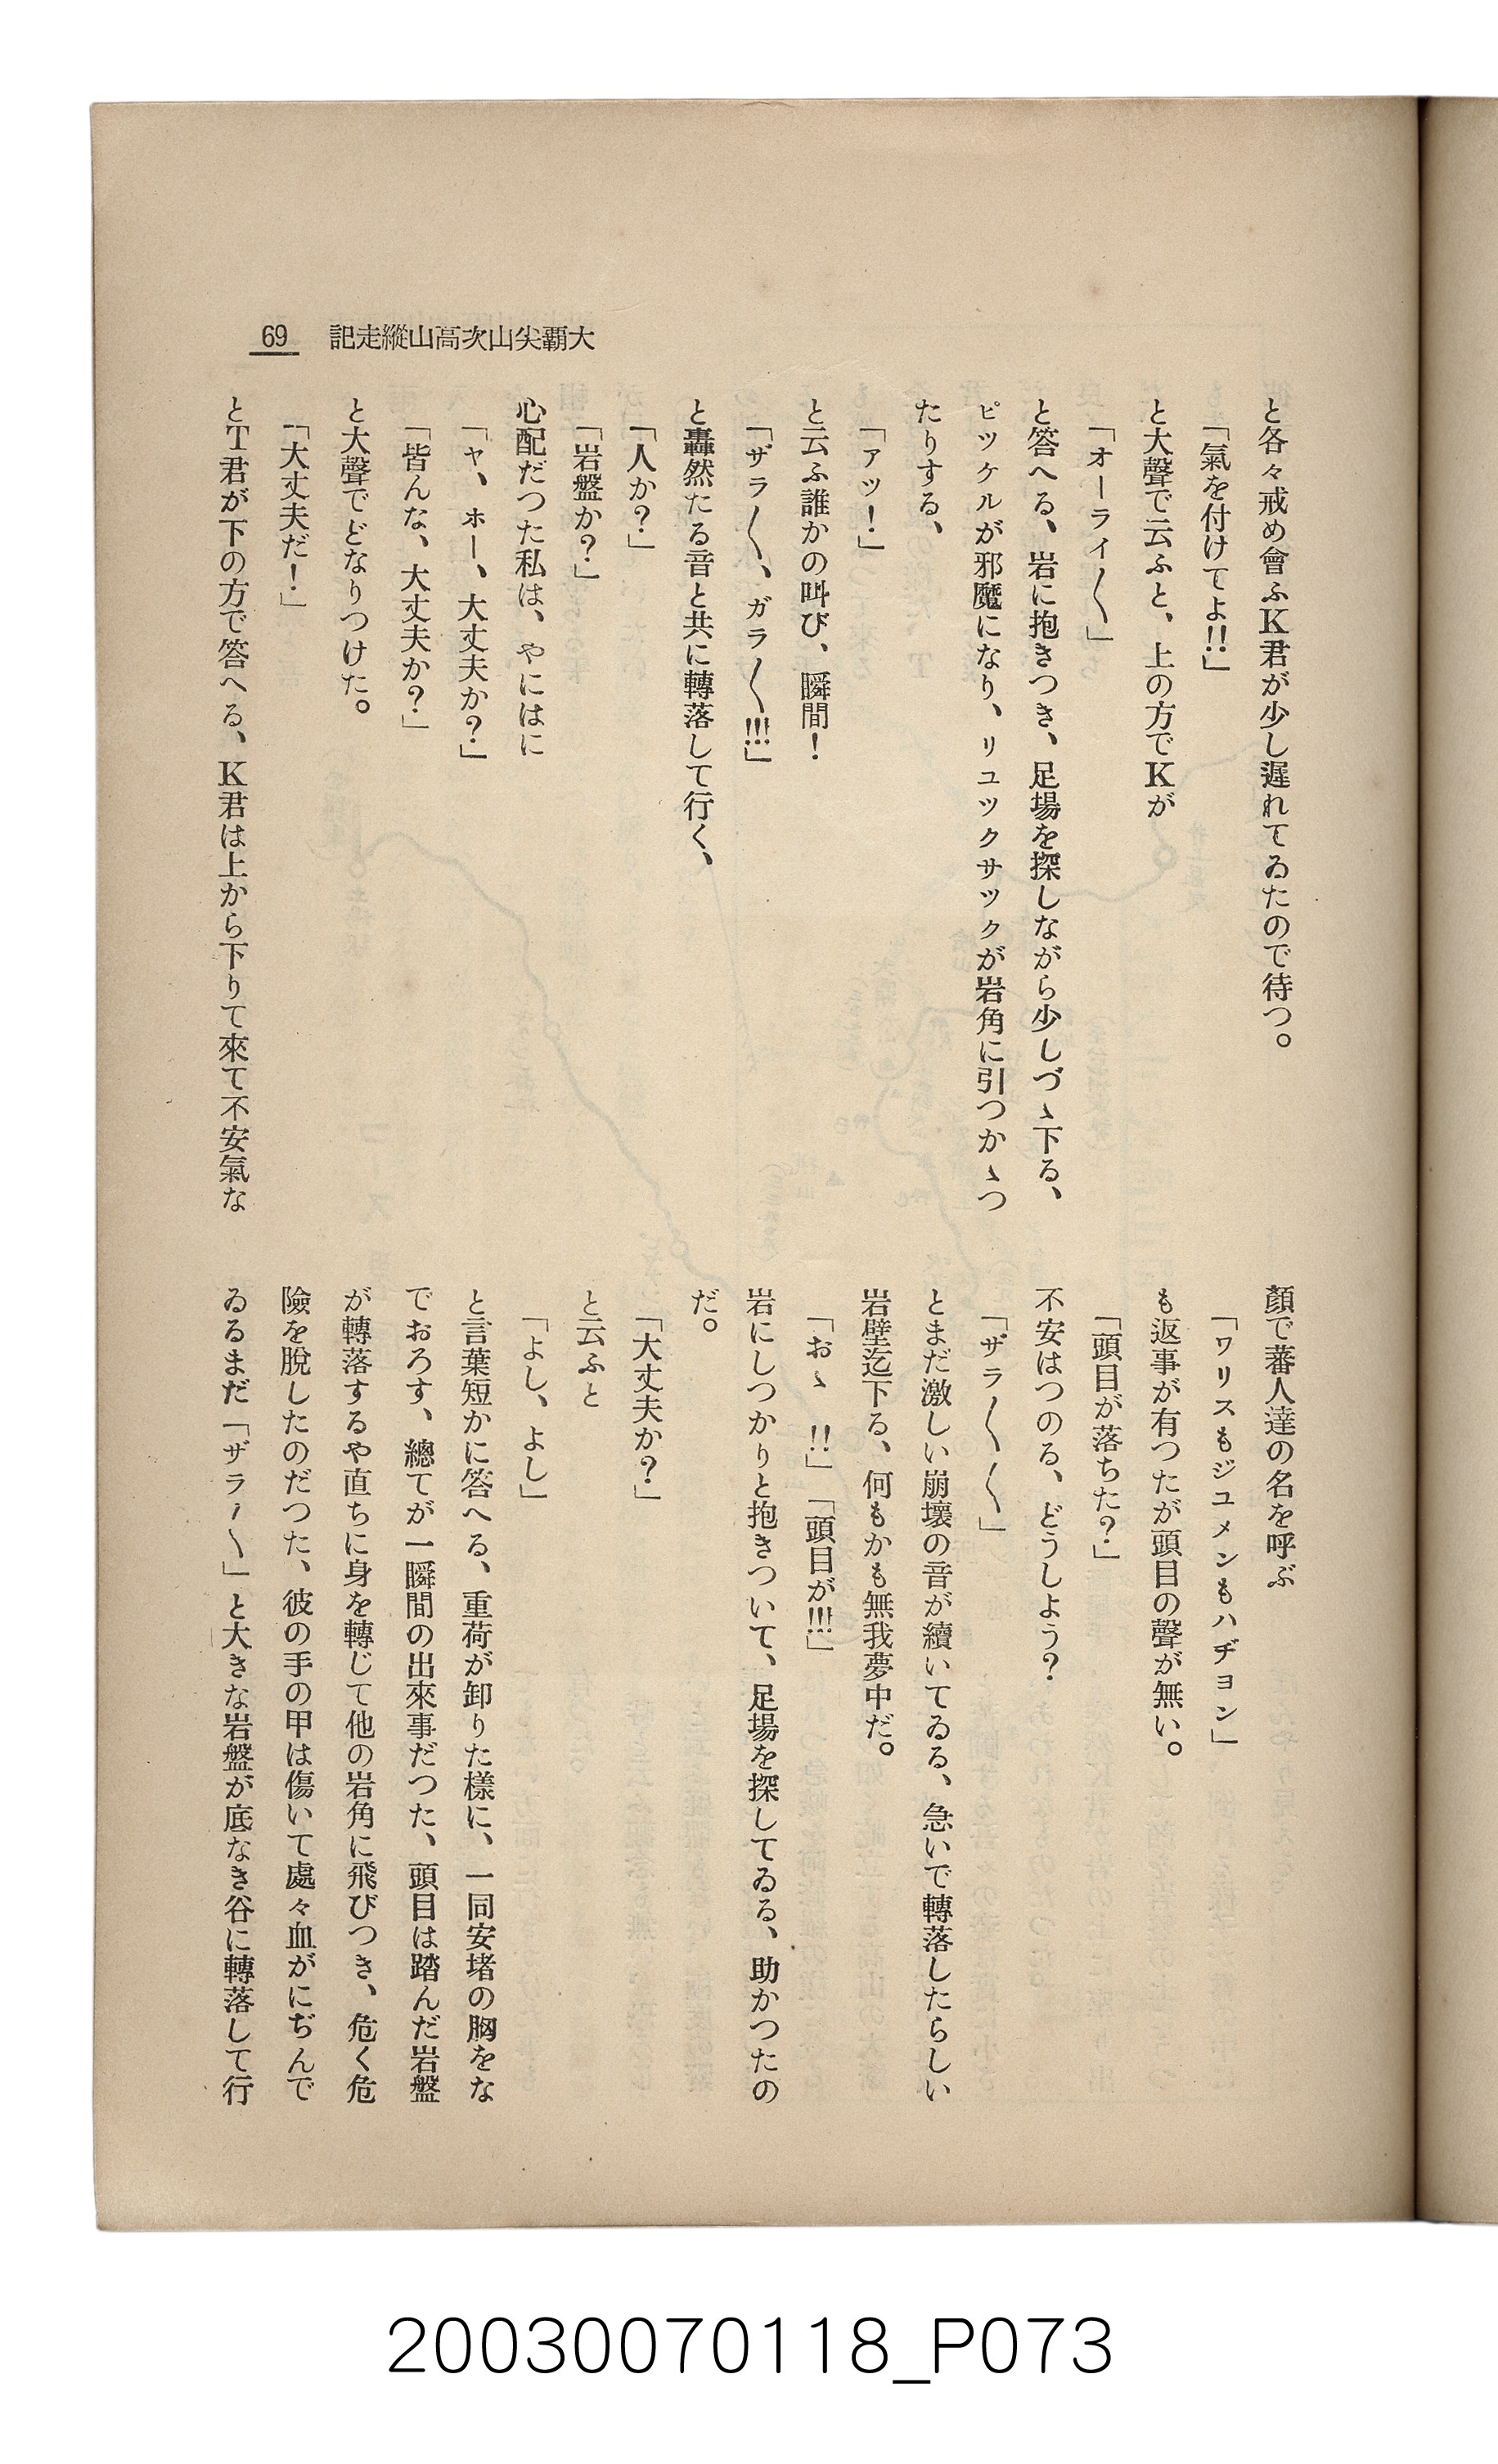 大霸尖山次高山縱走記
69
と各々戒め會ふK君が少し遅れてゐたので待つ。
「氣を付けてよ!!」
と大聲で云ふと、上の方でKが
「オーライ〳〵」
と答へる、岩に抱きつき、足場を探しながら少しづゝ下る、
ピツケルが邪魔になり、リユツクサツクが岩角に引つかゝつ
たりする、
「アツ！」
と云ふ誰かの叫び、瞬間！
「ザラ〳〵、ガラ〳〵!!!」
と轟然たる音と共に轉落して行く、
「人か？」
「岩盤か？」
心配だつた私は、やにはに
「ヤ、ホー、大丈夫か？」
「皆んな、大丈夫か？」
と大聲でどなりつけた。
「大丈夫だ！」
とT君が下の方で答へる、K君は上から下りて來て不安氣な
顏で蕃人達の名を呼ぶ
「ワリスもジユメンもハヂヨン」
も返事が有つたが頭目の聲が無い。
「頭目が落ちた？」
不安はつのる、どうしよう？
「ザラ〳〵〳〵」
とまだ激しい崩壞の音が續いてゐる、急いで轉落したらしい
岩壁迄下る、何もかも無我夢中だ。
「おゝ !!」「頭目が!!!」
岩にしつかりと抱きついて、足場を探してゐる、助かつたの
だ。
「大丈夫か？」
と云ふと
「よし、よし」
と言葉短かに答へる、重荷が卸りた樣に、一同安堵の胸をな
でおろす、總てが一瞬間の出來事だつた、頭目は踏んだ岩盤
が轉落するや直ちに身を轉じて他の岩角に飛びつき、危く危
險を脫したのだつた、彼の手の甲は傷いて處々血がにぢんで
ゐるまだ「ザラ〳〵」と大きな岩盤が底なき谷に轉落して行
20030070118_P073